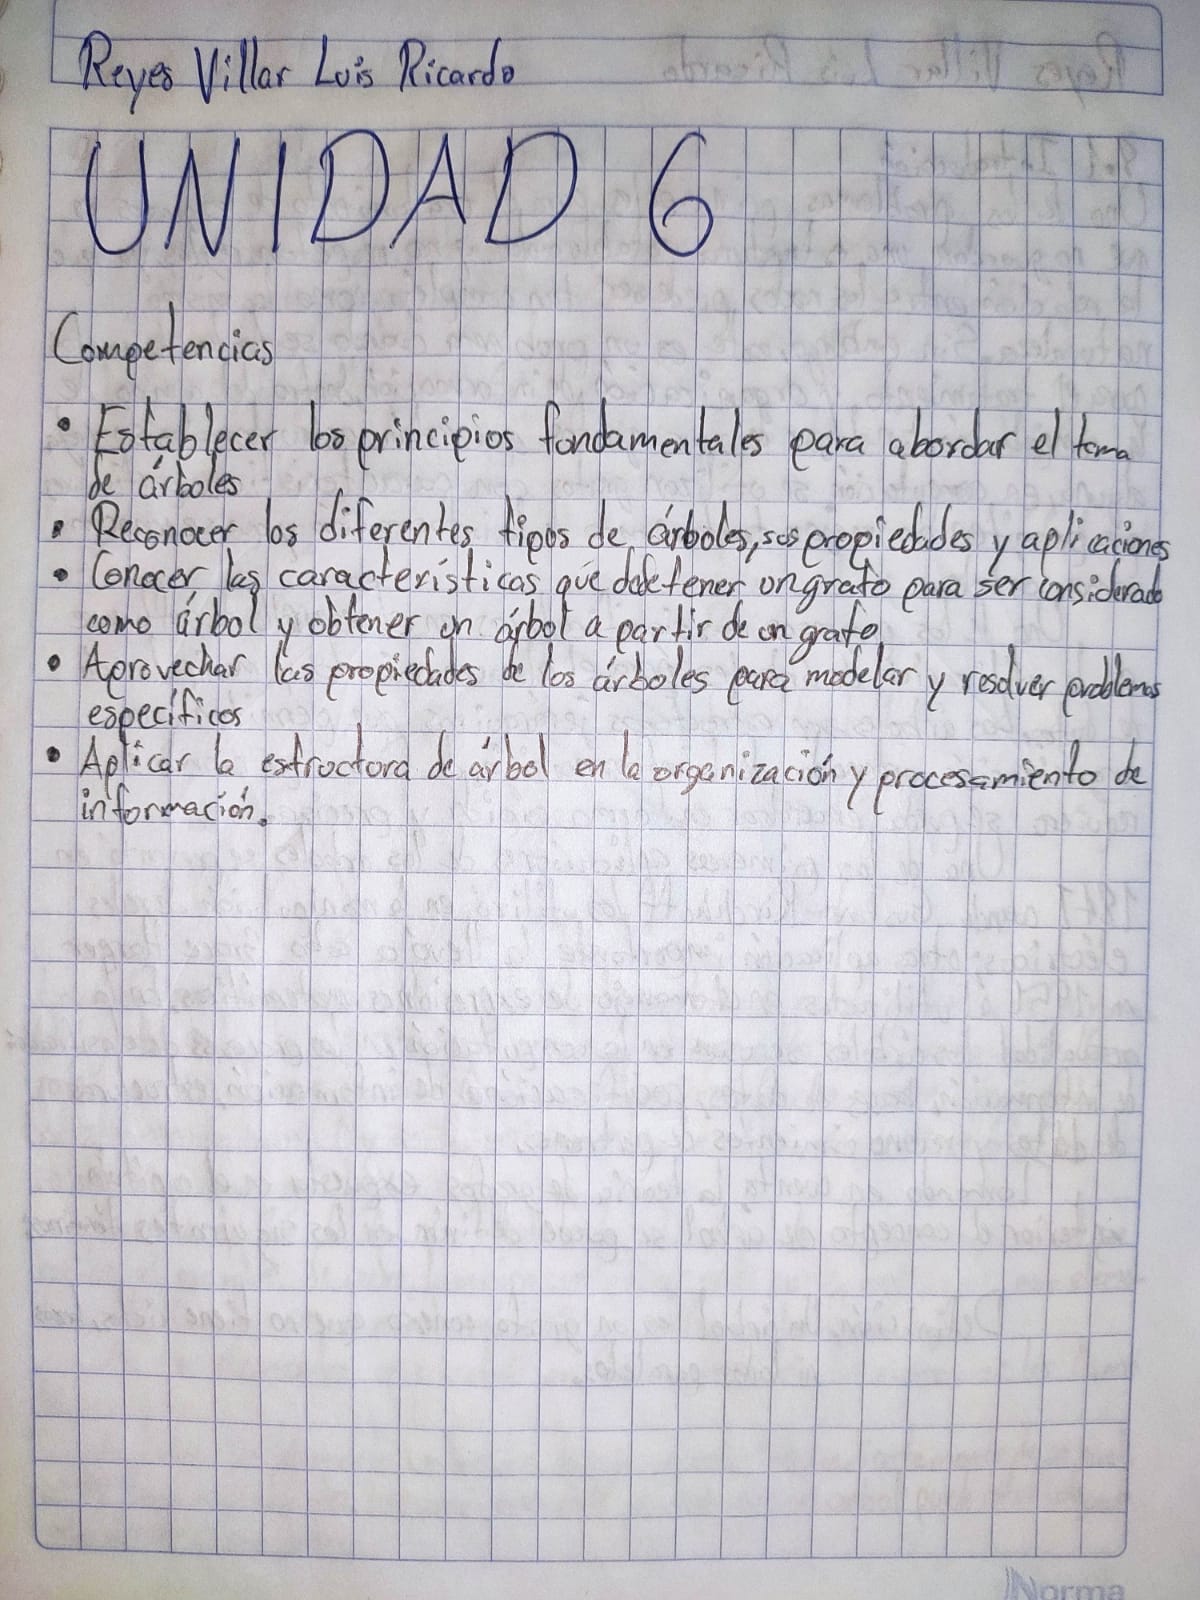 Reyes Villar Luis Ricardo
UNIDAD 6
Competencias
• Establecer los principios fundamentales para abordar el tema
de árboles
• Reconocer los diferentes tipos de árboles, sus propiedades y aplicaciones
• Conocer las características que debe tener un grafo para ser considerado
como árbol y obtener un árbol a partir de un grafo
• Aprovechar las propiedades de los árboles para modelar y resolver problemas
específicos
• Aplicar la estructura de árbol en la organización y procesamiento de
información.
Norma